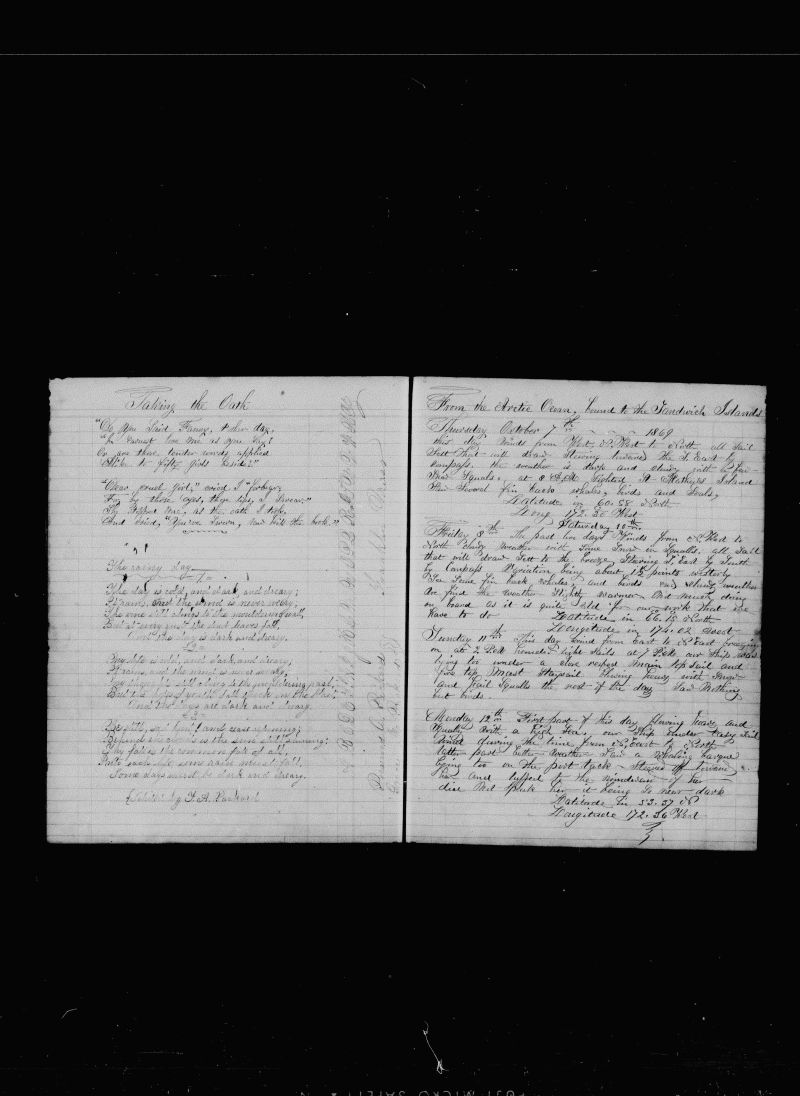 Taking the Oath
"Do you said Fanny, t'other day,
"In earnest love me as you say?
Or are those tender words applied
Alike to fifty girls beside?"
"Dear cruel girl," cried I "forbear,
For by those eyes, those lips, I swear,"
She stopped me, as the oath I took,
And said, "You've sworn, now kiss the book."
The rainy day
The day is cold, and dark, and dreary;
It rains, and the wind is never weary;
The vine still clings to the mouldering wall,
But at every gust the dead leaves fall,
And the day is dark and dreary.
My life is cold, and dark, and dreary;
It rains, and the wind is never weary;
My thoughts still cling to the mouldering past,
But the hopes of youth fall thick in the blast,
And the days are dark and dreary.
Be still, sad heart, and cease repining;
Behind the clouds is the sun still shining;
Thy fate is the common fate of all,
Into each life some rain must fall,
Some days must be dark and dreary.
From the Arctic Ocean, bound to the Sandwich Islands
Thursday October 7th 1869
this day Winds from West, N. West to North all Sail
Sett that will draw Stering towards the S. East by
compass, the weather is dark and cloudy with a few
Snow Squalls, at 8 Sighted St Mathews Island
Saw Several fin back whales, birds and Seals,
Latitude in 60.58 North
Long 172.30 West
Saturday 10th
Friday 8th The past two days Winds from N. West to
North Cloudy Weather with Some Snow in Squalls, all Sail
that will draw Sett to the breeze Stering S. East by South
by Compass Variation being about 1½ points westerly
Saw Some fin back whales, and birds
we find the weather Slightly warmer Not much doing
on board as it is quite Cold for our work that we
have to do Latitude in 56.15 North
Longitude in 174.02 West
Sunday 11th This day wind from East to N. East breezing
on at 2 P.M. furled light Sails at 7 P.M. our Ship was
lying too under a close reefed main top Sail and
fore top Mast Staysail blowing heavy with Snow
and Hail Squalls the rest of the day Saw Nothing
but birds.
Monday 12th First part of this day blowing heavy and
Squally with a high Sea, our Ship under easy Sail
during the time from N. East to North
latter part better weather Saw a Whaling barque
lying too on the port tack
and luffed to the windward of her
did not Speak her it being So near dark
Latitude in 53.37 N
Longitude 172.36 West